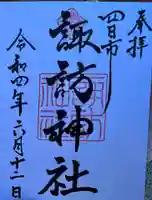 奉拝
四日市
諏訪神社
令和四年六月十二日